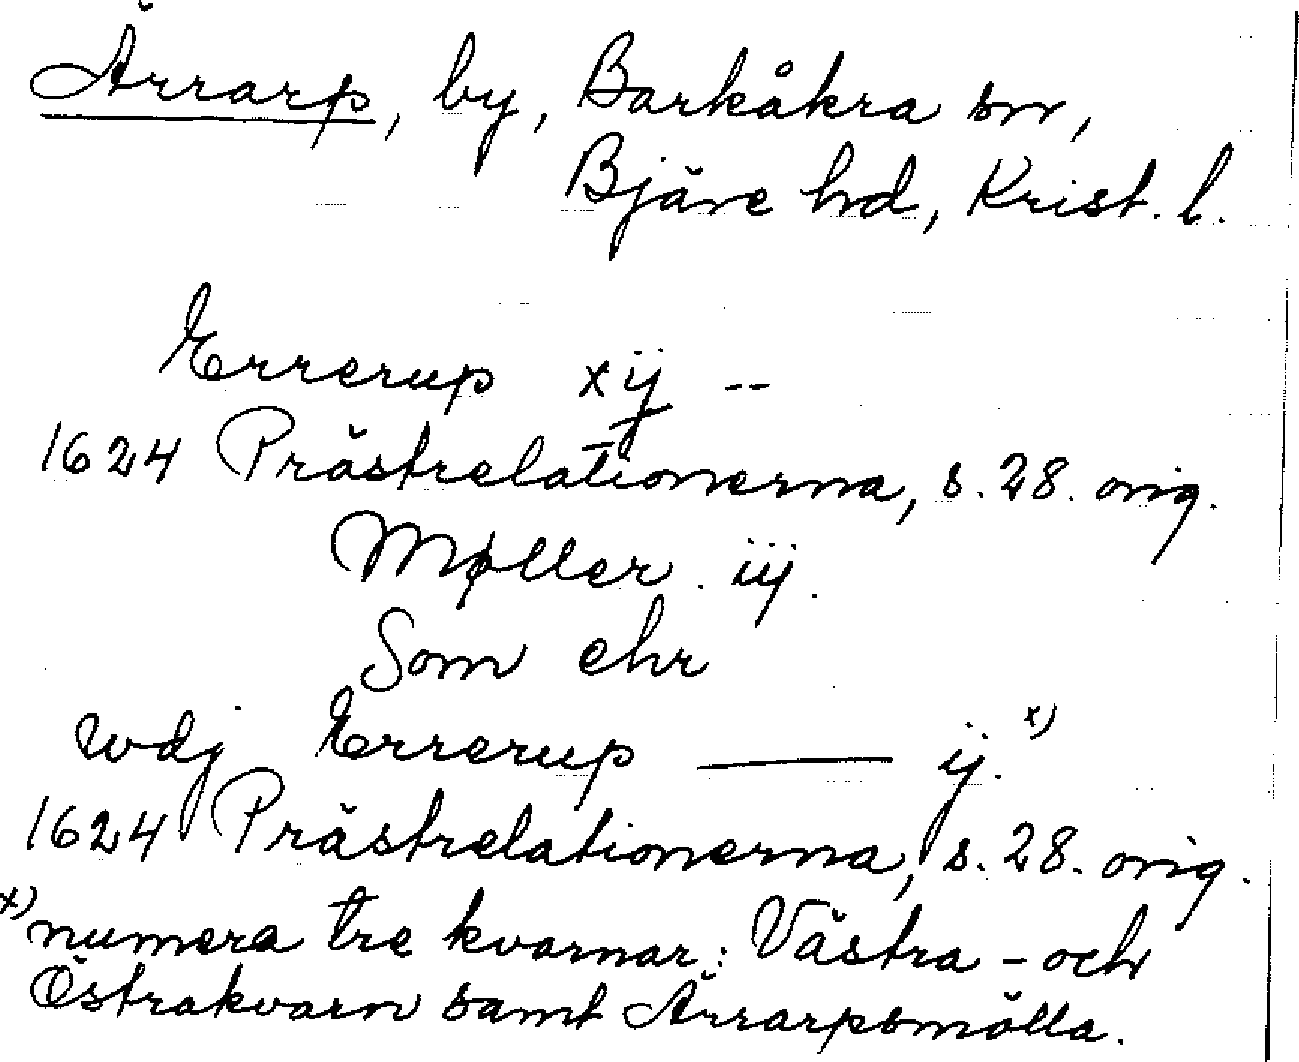 Ärrarp, by, Barkåkra sn,
Bjäre hd, Krist. l.
Errerup xij --
1624 Prästrelationerna, s. 28. orig.
Møller. iij.
Som ehr
wdj Errerup —— ij. x)
1624 Prästrelationerna, s. 28. orig.
x) numera tre kvarnar: Västra - och
Östrakvarn samt Ärrarpsmölla.